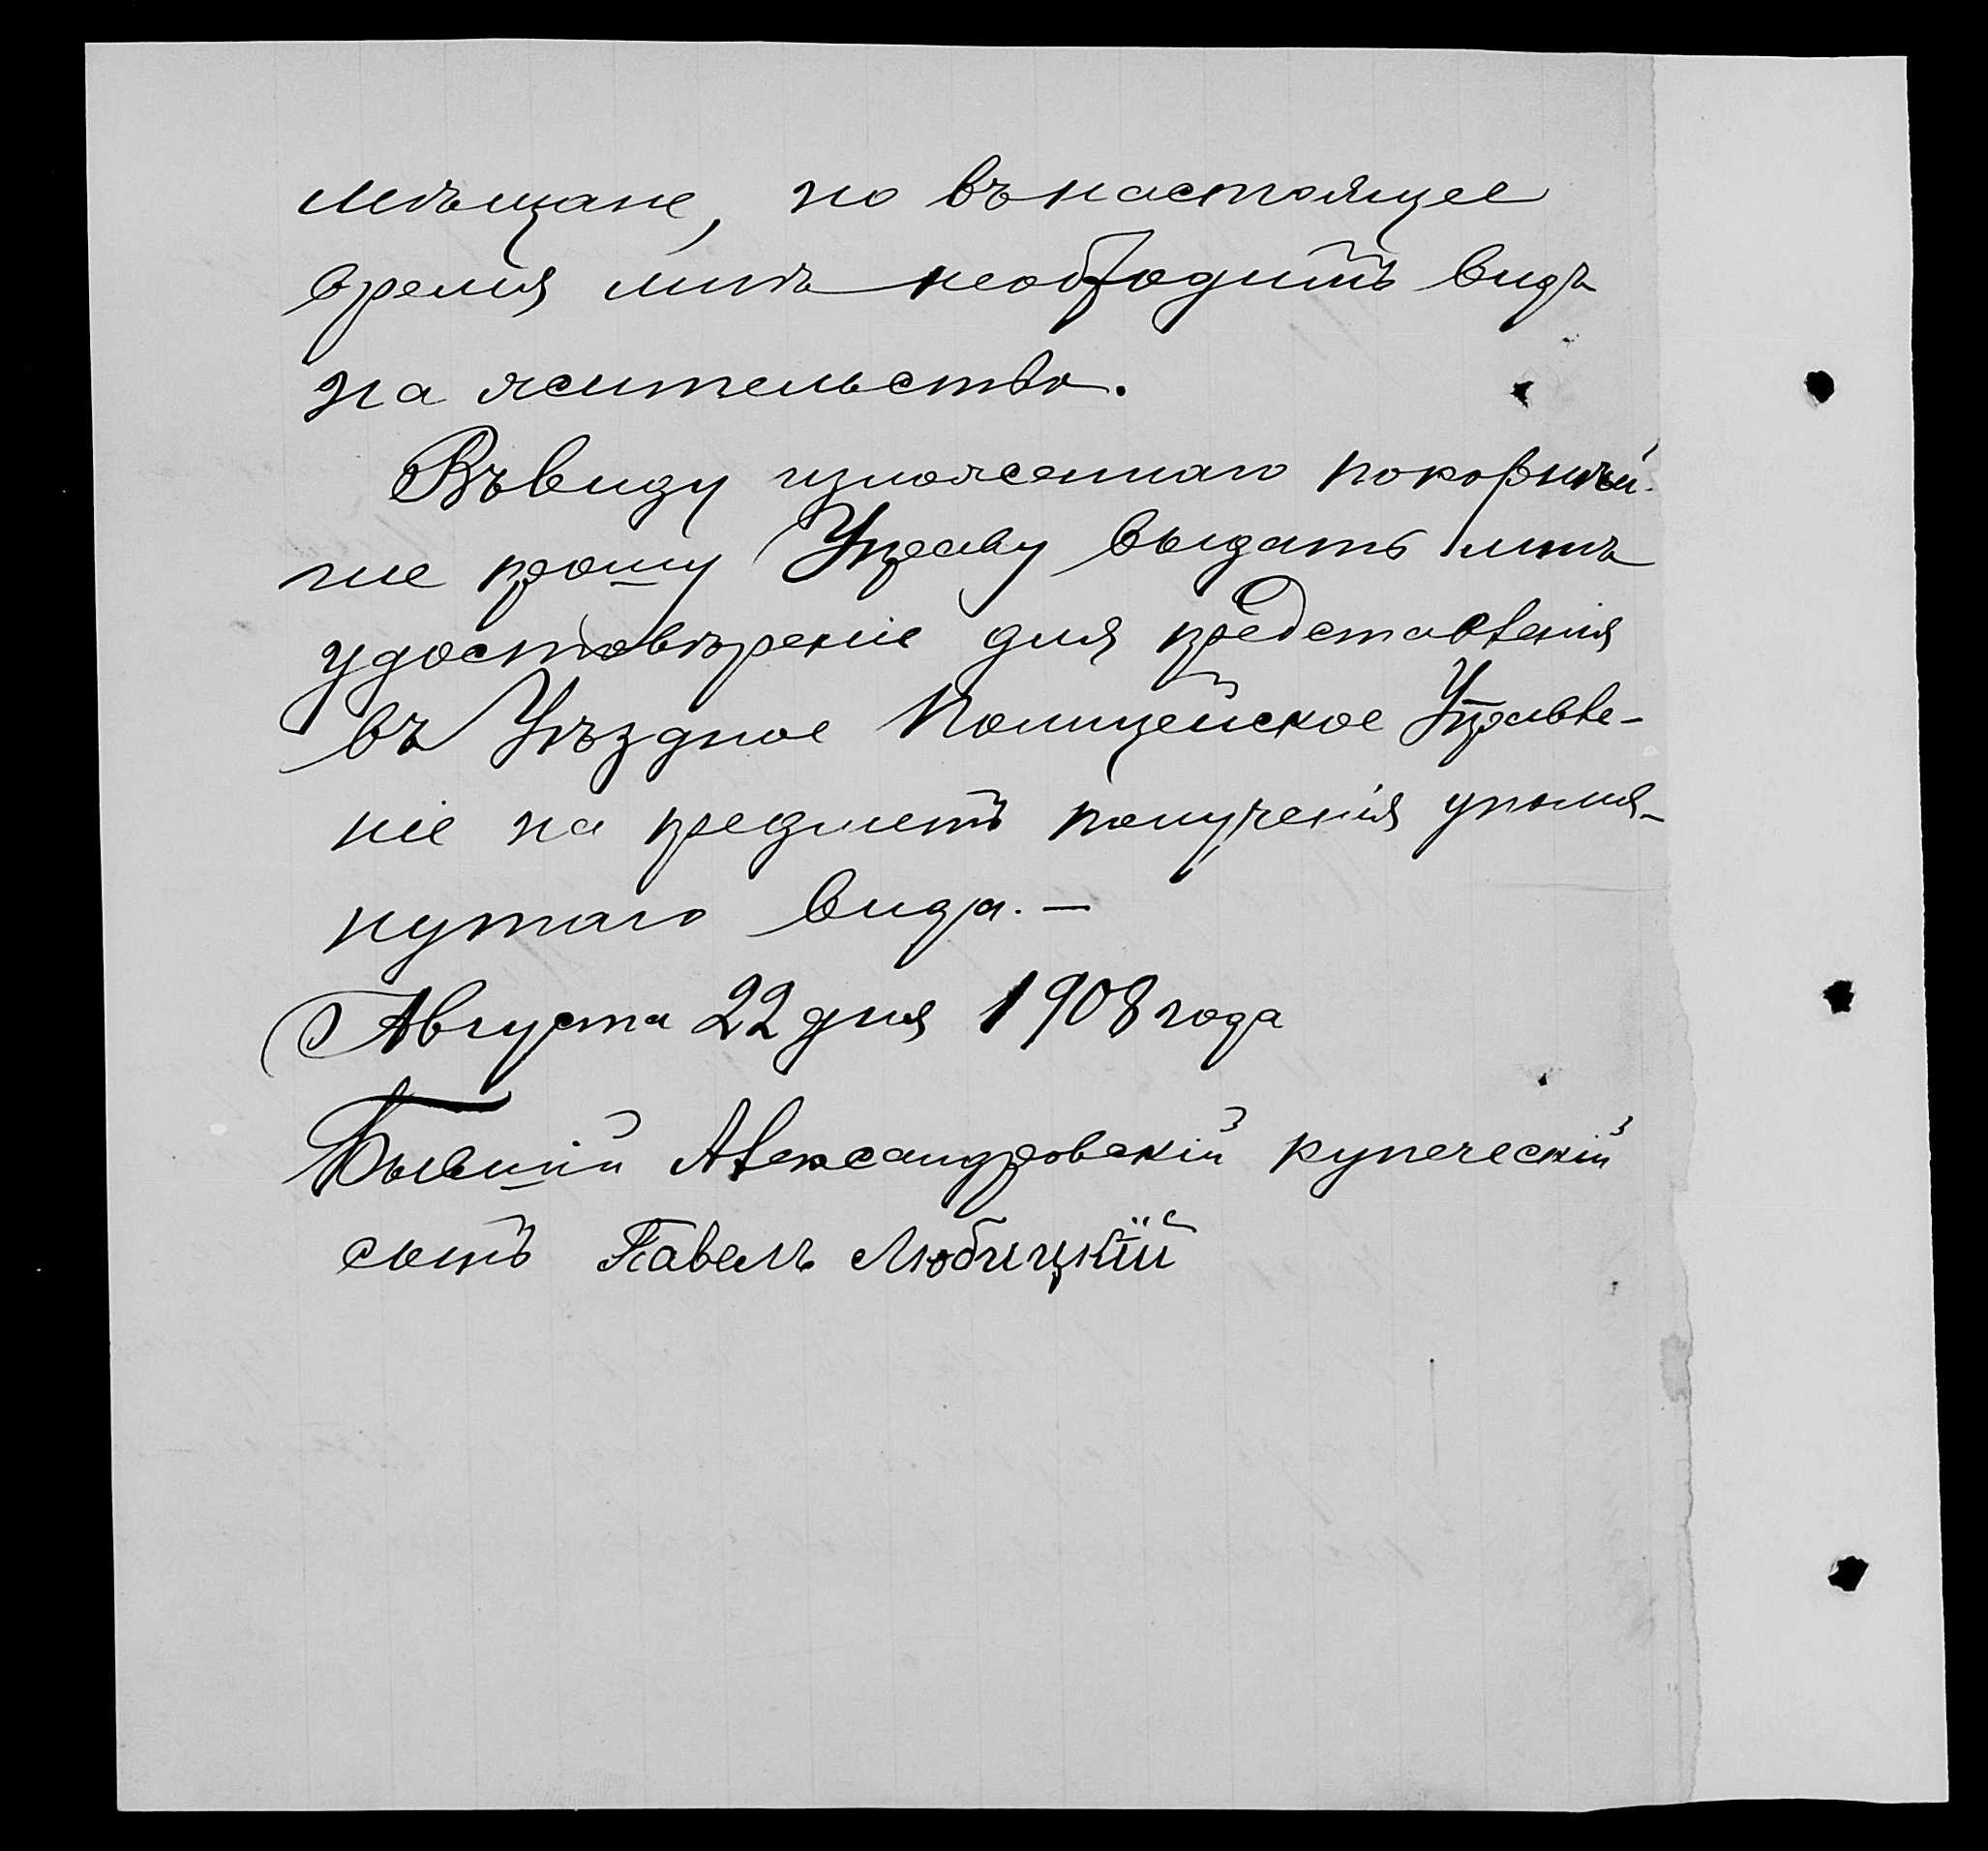 мѣщане, но въ настоящее
время мнѣ необходимъ видъ
на жительство.
Въ виду изложеннаго покорнѣй-
ше прошу Управу выдать мнѣ
удостовѣреніе для представленія
въ Уѣздное Полицейское Управле-
ніе на предметъ полученія упомя-
нутаго вида. —
Августа 22 дня 1908 года
Бывшій Александровскій купеческій
сынъ Павелъ Любицкій